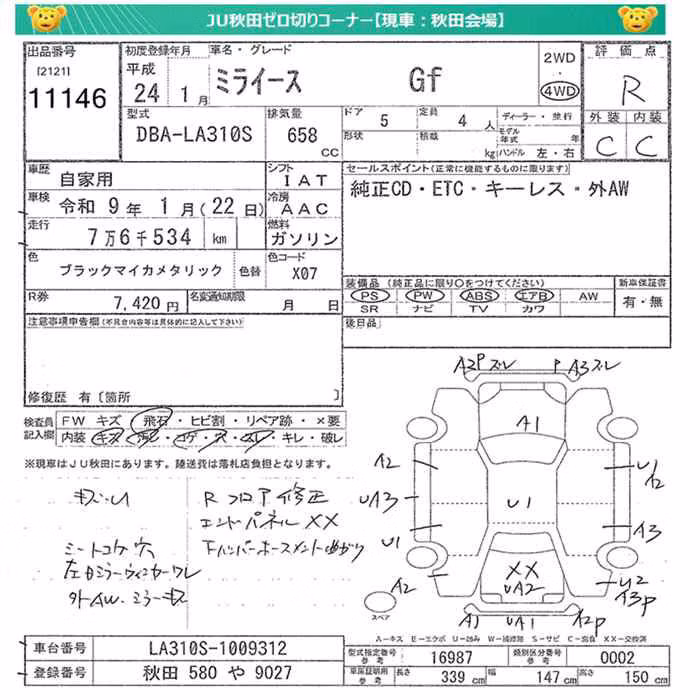 JU秋田ゼロ切りコーナー【現車：秋田会場】
出品番号
[2121]
11146
初度登録年月
平成
24 1月
車名・グレード
ミライース Gf
2WD
4WD
評価点
R
外装 内装
C C
型式
DBA-LA310S
排気量
658
CC
ドア 5
形状
定員 4 人
積載 kg
ディーラー・並行
モデル年式 年
ハンドル 左・右
車歴
自家用
シフト
IAT
車検
令和 9年 1月(22日)
冷房
AAC
走行
7万6千534 km
燃料
ガソリン
色
ブラックマイカメタリック
色替
色コード
X07
R券
7,420円
名変通知期限
月 日
セールスポイント(正常に機能するものに限ります)
純正CD・ETC・キーレス・外AW
装備品(純正品に限り○をつけてください)
PS PW ABS エアB AW
SR ナビ TV カワ
新車保証書
有・無
後日品
注意事項申告欄(不具合内容等は具体的に記入して下さい)
修復歴 有〔箇所 〕
検査員
記入欄
FW キズ・飛石・ヒビ割・リペア跡・×要
内装 キズ・汚レ・コゲ・穴・スレ・キレ・破レ
※現車はJU秋田にあります。陸送費は落札店負担となります。
Rフロア修正
エンドパネルXX
シートコゲ穴
A2P ズレ
P A3 ズレ
A1
A2
U1
A2
UA3
U1
U1
A3
A2
XX
UA2
U2
A3P
スペア
A1
UA1
A2P
A－キズ E－エクボ U－凹み W－補修跡 S－サビ C－腐食 XX－交換済
車台番号
LA310S-1009312
登録番号
秋田 580 や 9027
型式指定番号
参考
16987
類別区分番号
参考
0002
車庫証明用
参考
長さ 339 cm
幅 147 cm
高さ 150 cm